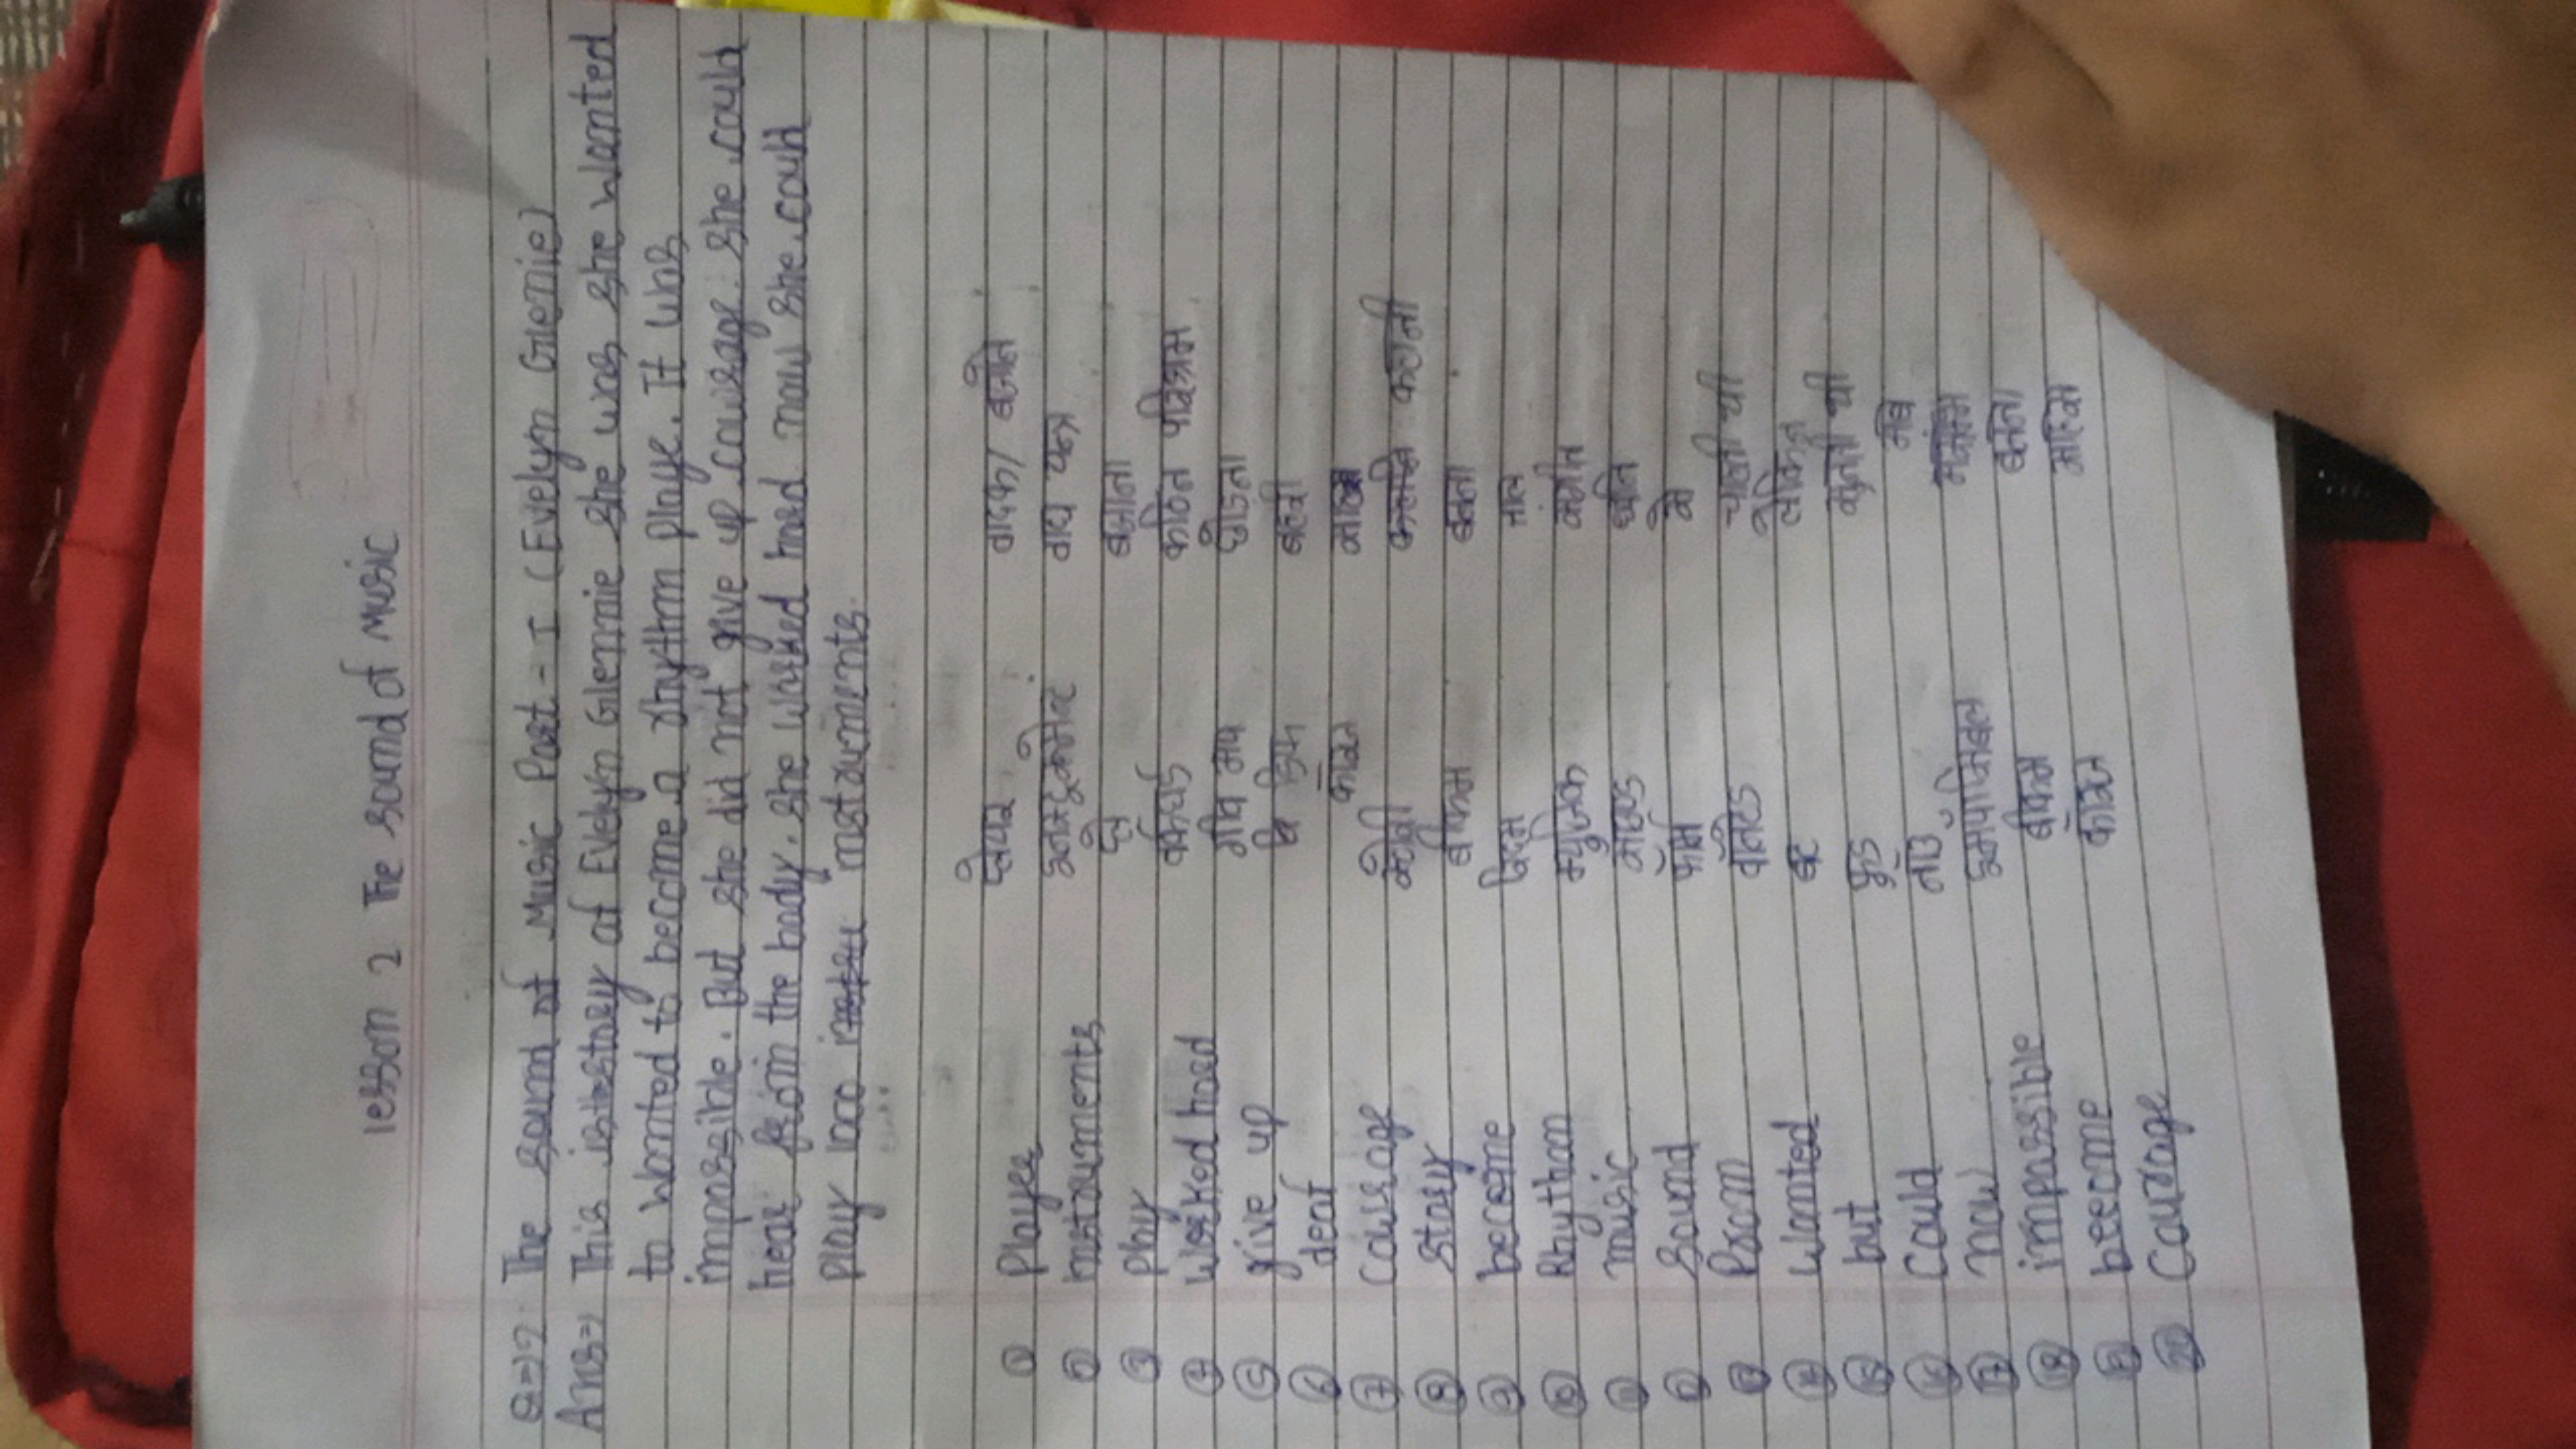 lesson 2 The sound of Music
Q=>2 The sound of Music Part - I (Evelyn Glenie)
Ans=> This is the story of Evelyn Glennie she was she wanted
to wanted to become a rhythm playe. It was
impossible. But she did not give up courage. she could
hear from the body. she worked hard now she could
play 1000 instruments.
① Player प्लेयर वादक/ बजाने
② instruments इन्सट्रूमेन्ट वाद्य यन्त्र
③ Play प्ले बजाना
④ worked hard वर्कहार्ड कठिन परिश्रम
⑤ give up गीव अप छोडना
⑥ deaf बहरी
⑦ courage करेज साहस
⑧ story स्टोरी कहानी
⑨ become बीकम बनना
⑩ Rhythm रिदम ताल
⑪ music म्युजिक संगीत
⑫ sound साउण्ड ध्वनि
⑬ From फ्रॉम से
⑭ wanted वॉन्टेड चाहती थी
⑮ but बट लेकिन
⑯ could कुड सकती थी
⑰ now नाउ अब
⑱ impossible इमपॉसिबल असंभव
⑲ become बीकम बनना
⑳ Courage करेज साहस